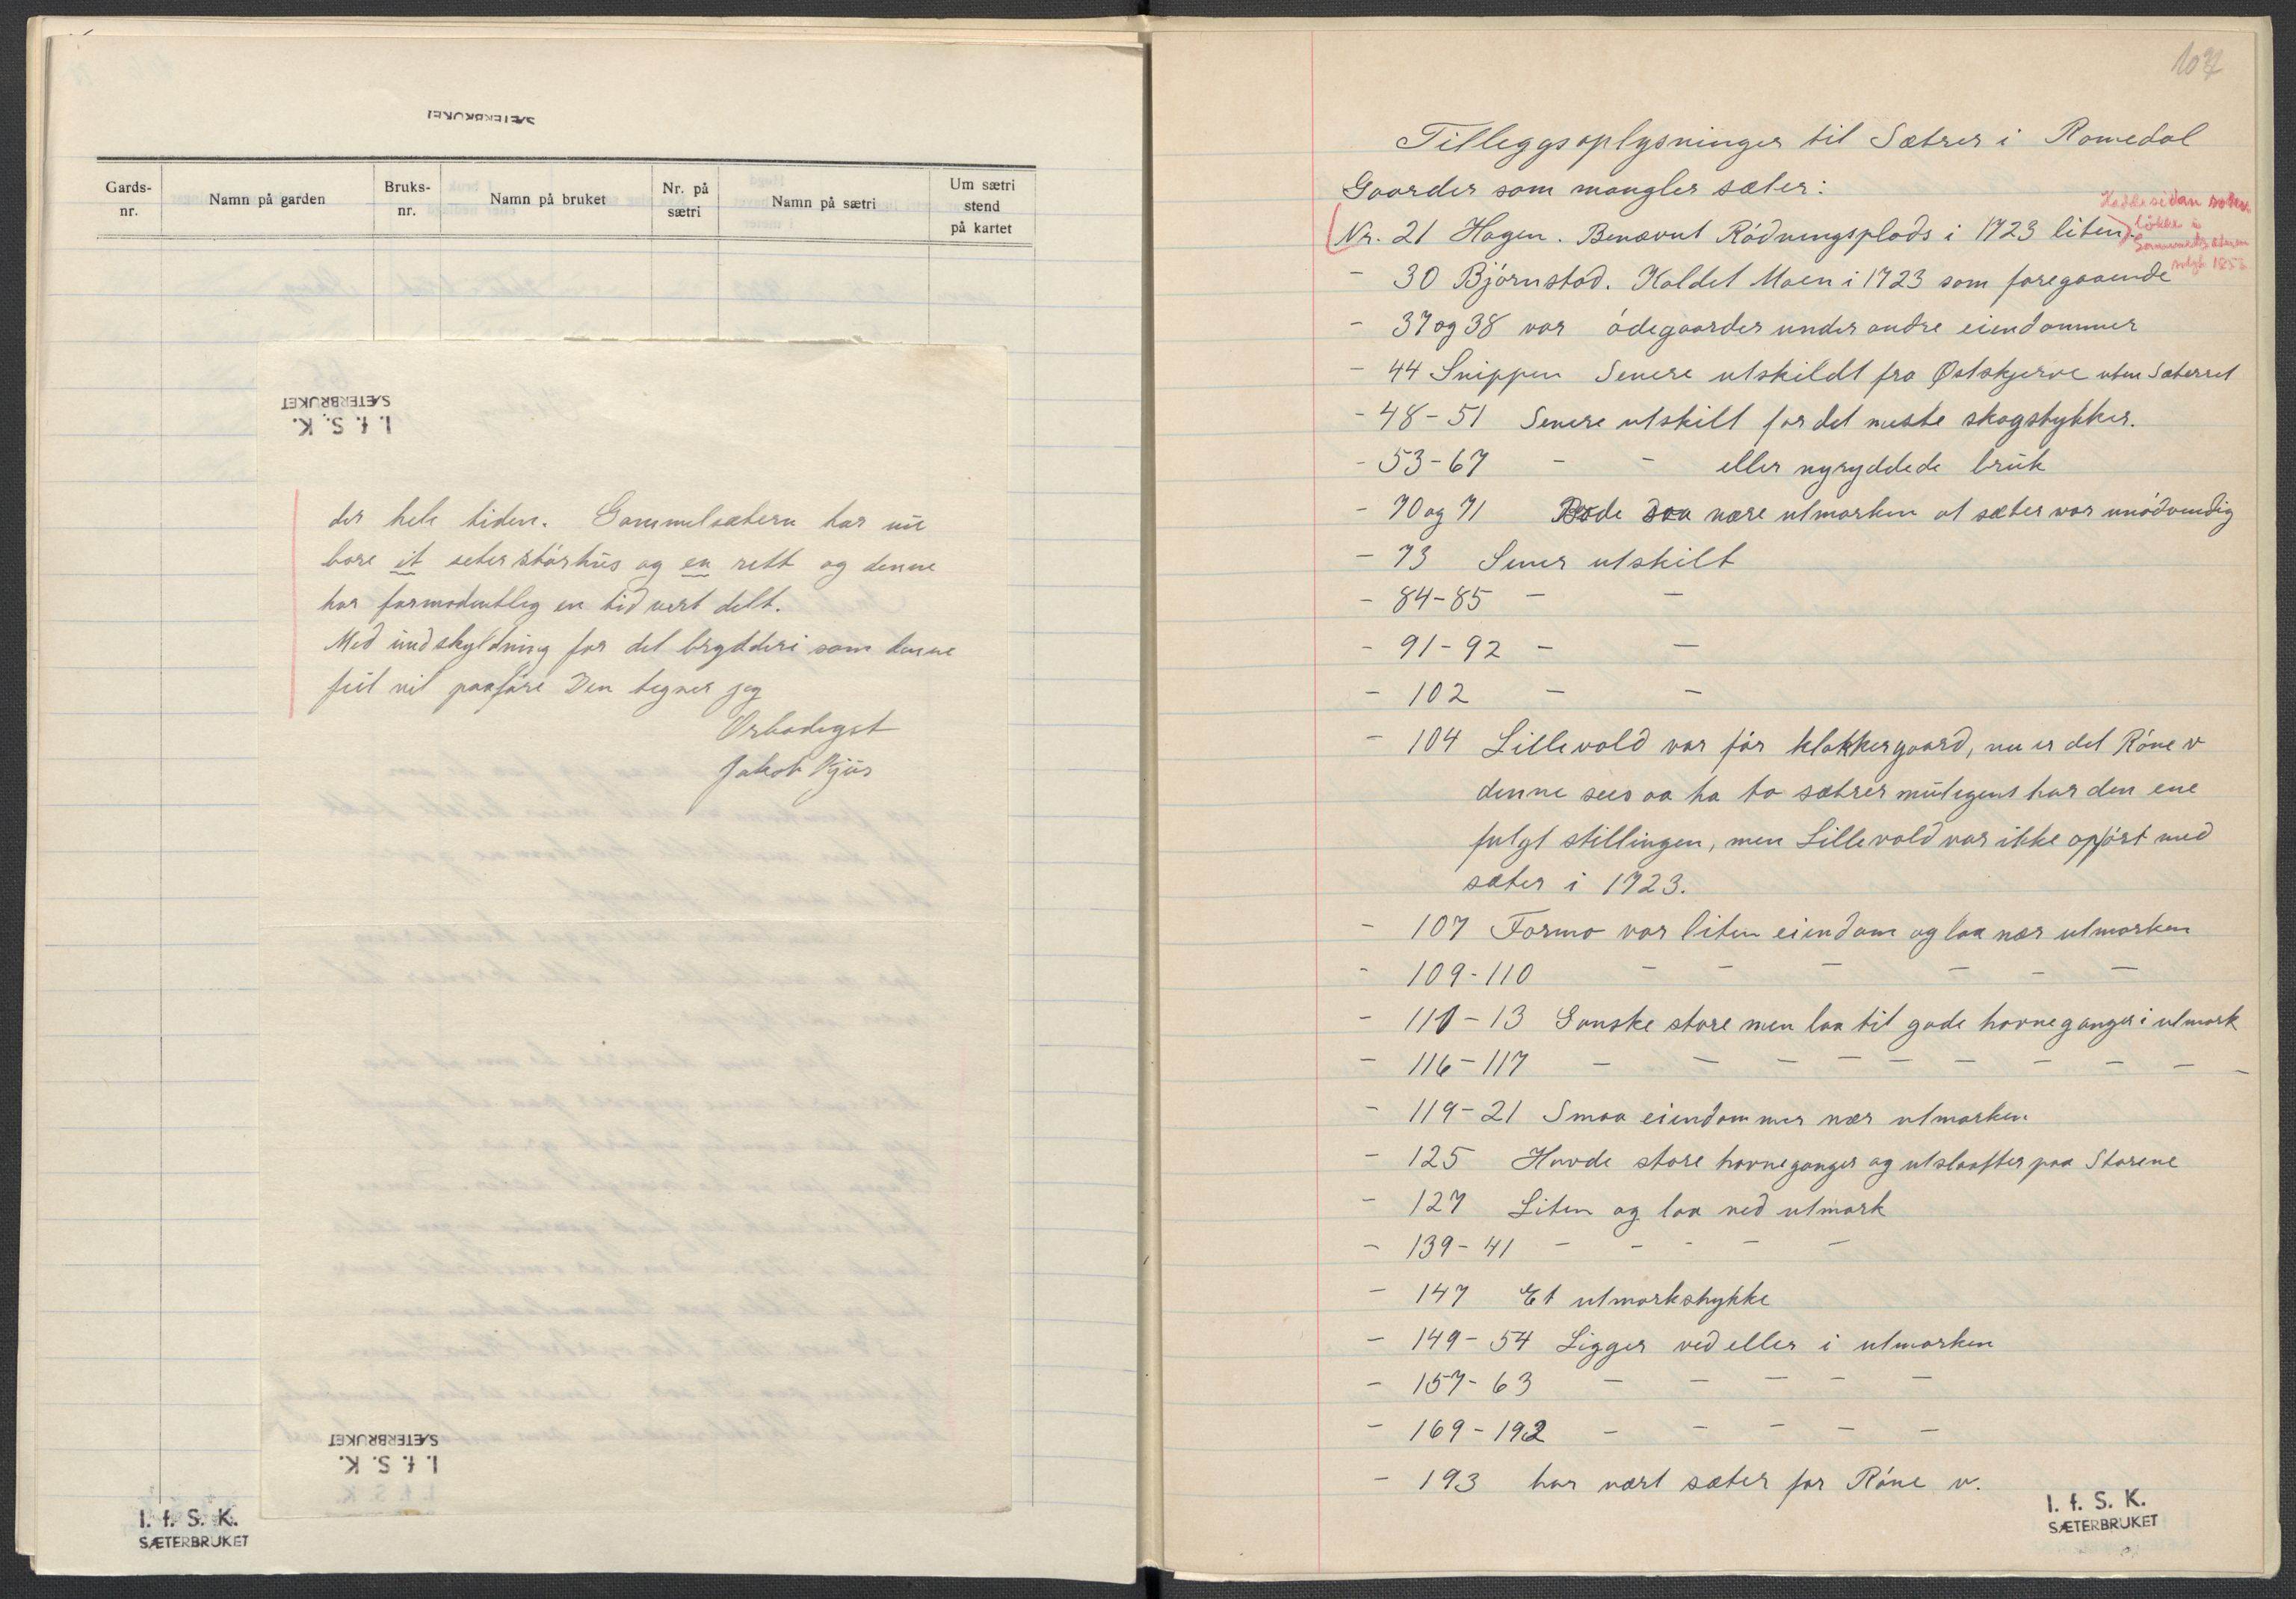 SÆTERBRUKET
Gards-nr.
Namn på garden
Bruks-nr.
Namn på bruket
Nr. på sætri
Namn på sætri
Um sætri stend på kartet
I. f. S. K.
SÆTERBRUKET
der hele tiden. Gammelsætern har nu
bare et seterstórhus og en rett og denne
har formodentlig en tid vært delt.
Med undskyldning for det brydderi som denne
feil vil paaføre Dem tegner jeg
Ærbødigst
Jakob Kjus
I. f. S. K.
SÆTERBRUKET
I. f. S. K.
SÆTERBRUKET
107
Tilleggsoplysninger til Sætrer i Romedal
Gaarder som mangler sæter:
Nr. 21 Hagen. Benævnt Rödningsplads i 1723 liten.
Hadde sidan
løkke i
1853
- 30 Björnstad. Kaldet Moen i 1723 som foregaaende
- 37 og 38 var ödegaarder under andre eiendommer
- 44 Snippen Senere utskildt fra Østskjerve uten Sæterret
- 48-51 Senere utskilt for det meste skogstykker.
- 53-67 - - eller nyryddede bruk
- 70 og 71 Bode saa nære utmarken at sæter var unödvendig
- 73 Sener utskilt
- 84-85 - -
- 91-92 - -
- 102 - -
- 104 Lillevold var før klokkergaard, nu er det Röne v
denne sees aa ha to sætrer muligens har den ene
fulgt stillingen, men Lillevold var ikke opfört med
sæter i 1723.
- 107 Formo var liten eiendom og laa nær utmarken
- 109-110 - - - - - -
- 111-13 Ganske store men laa til gode havneganger i utmark
- 116-117 - - - - - - - - -
- 119-21 Smaa eiendommer nær utmarken
- 125 Havde store havneganger og utslaatter paa Starene
- 127 Liten og laa ved utmark
- 139-41 - - - - -
- 147 Et utmarkstykke
- 149-54 Ligger ved eller i utmarken
- 157-63 - - - - -
- 169-192 - - - - -
- 193 har vært sæter for Röne v.
I. f. S. K.
SÆTERBRUKET